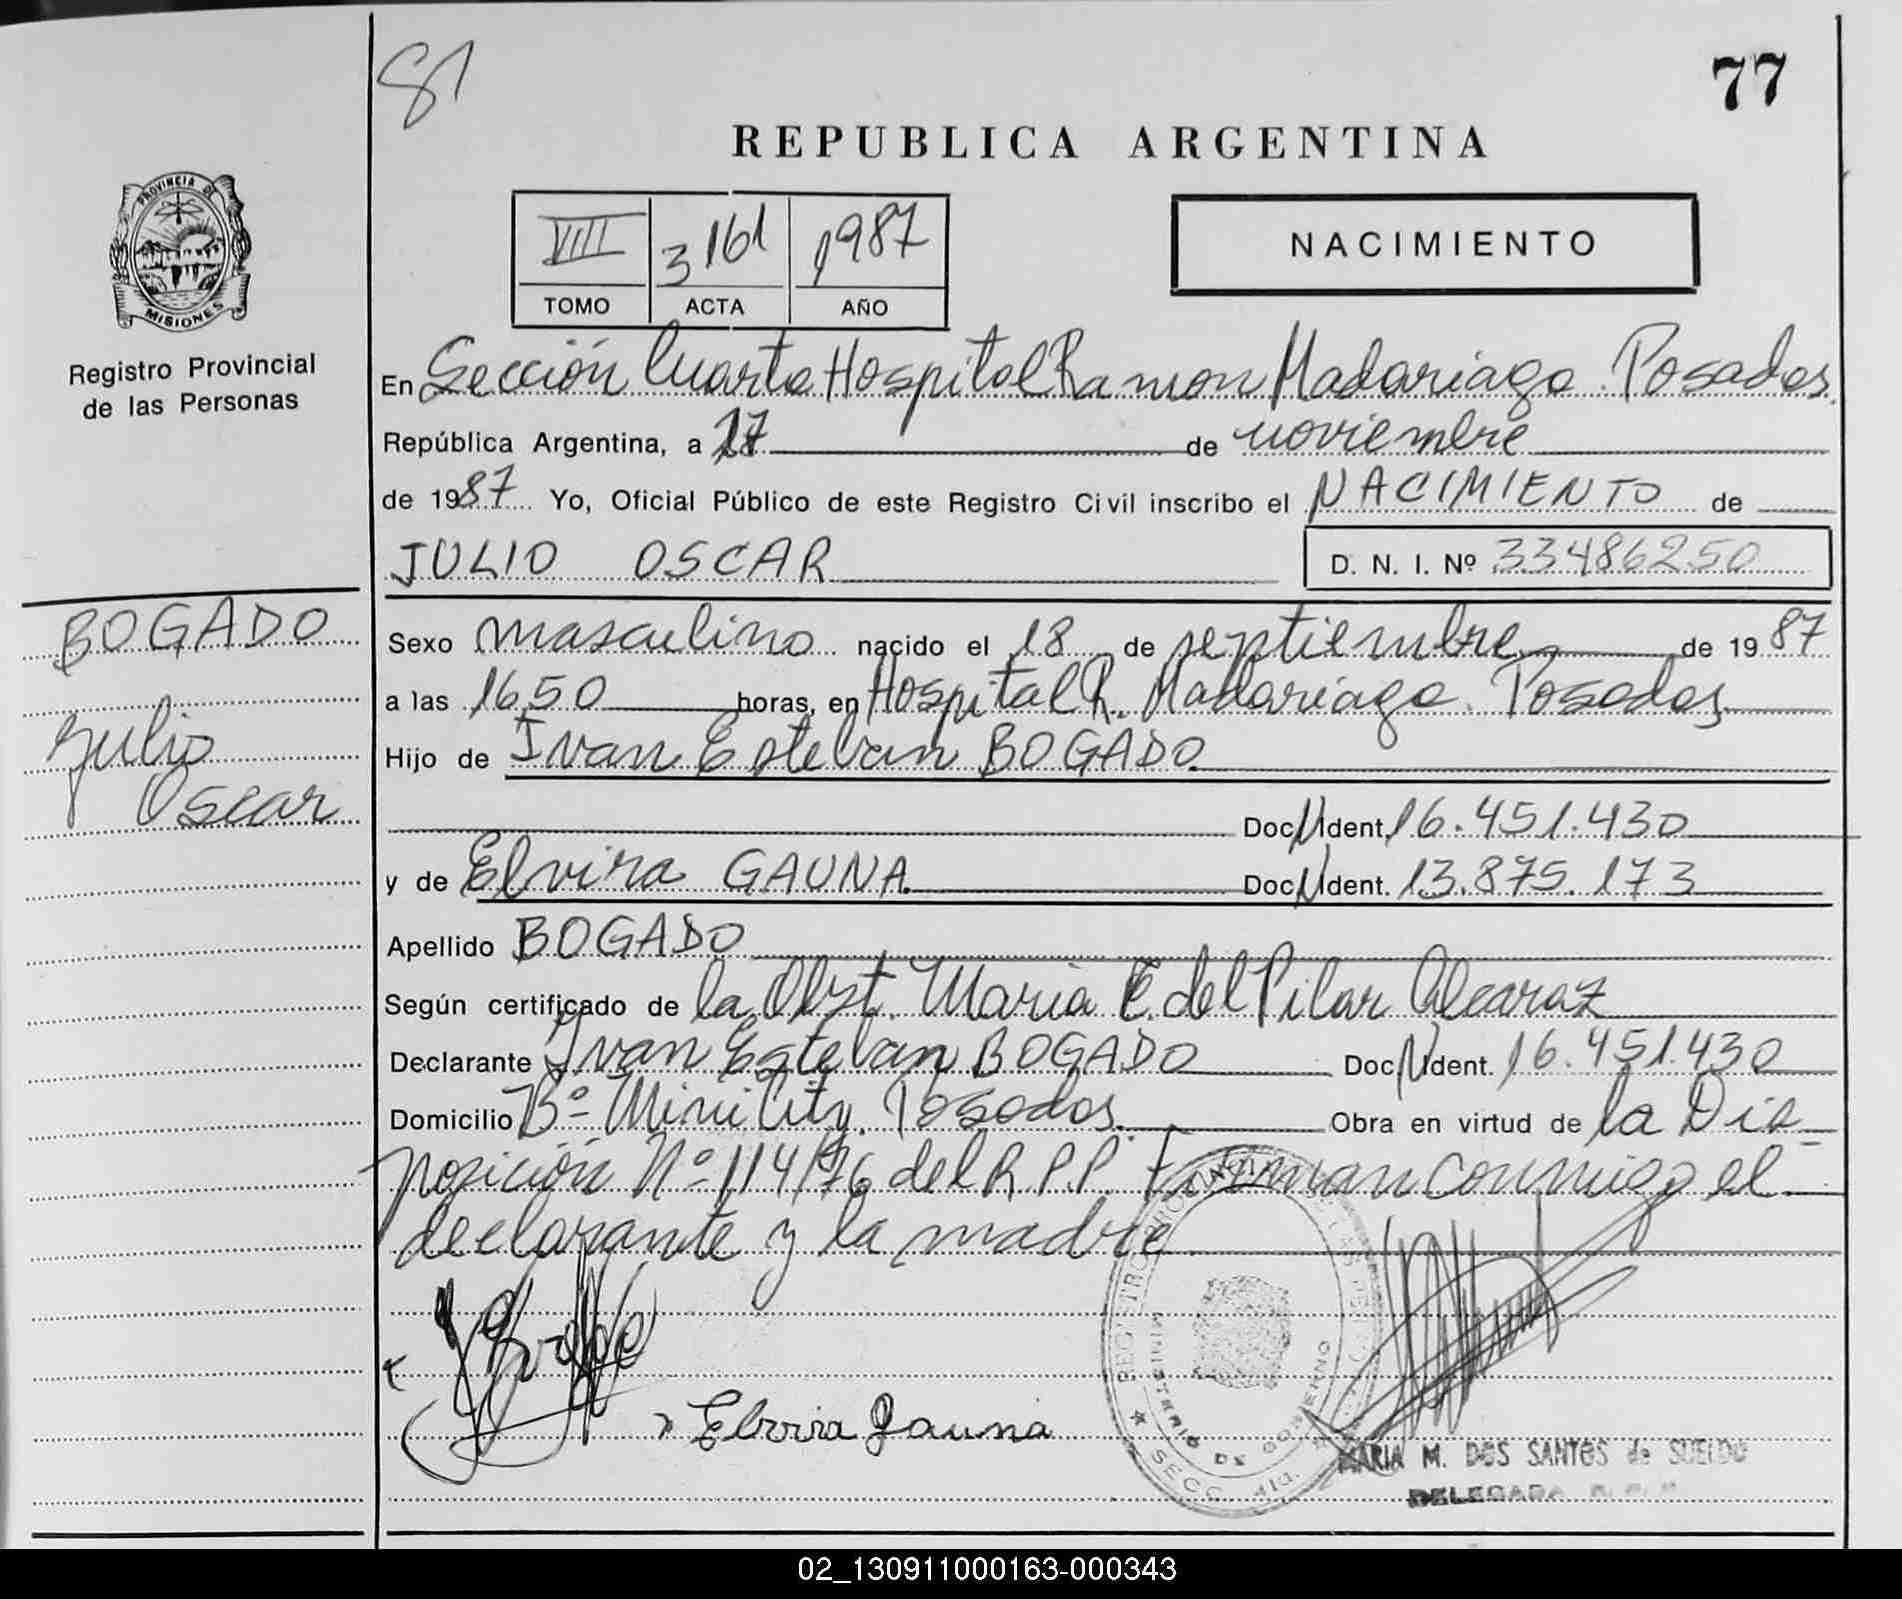 81
77
REPUBLICA ARGENTINA
PROVINCIA DE
MISIONES
Registro Provincial
de las Personas
VIII 3161 1987
TOMO ACTA AÑO
NACIMIENTO
En Sección Cuarta Hospital Ramon Madariaga. Posadas.
República Argentina, a 17 de noviembre
de 1987 Yo, Oficial Público de este Registro Civil inscribo el NACIMIENTO de
JULIO OSCAR D. N. I. Nº 33486250
BOGADO
Julio
Oscar
Sexo masculino nacido el 18 de septiembre de 1987
a las 16,50 horas, en Hospital R. Madariaga. Posadas
Hijo de Ivan Esteban BOGADO
Doc. N Ident. 16.451.430
y de Elvira GAUNA Doc. N Ident. 13.875.173
Apellido BOGADO
Según certificado de la Obst. Maria E. del Pilar Alcaraz
Declarante Ivan Esteban BOGADO Doc. N Ident. 16.451.430
Domicilio Bº Mini City. Posadas. Obra en virtud de la Dis-
posición Nº 114/76 del R.P.P. Firman conmigo el
declarante y la madre
Elvira Gauna
REGISTRO PROVINCIAL DE LAS PERSONAS
MINISTERIO DE GOBIERNO
SECC. 4ta.
MARIA M. DOS SANTOS de SUELDO
DELEGADA
02_130911000163-000343